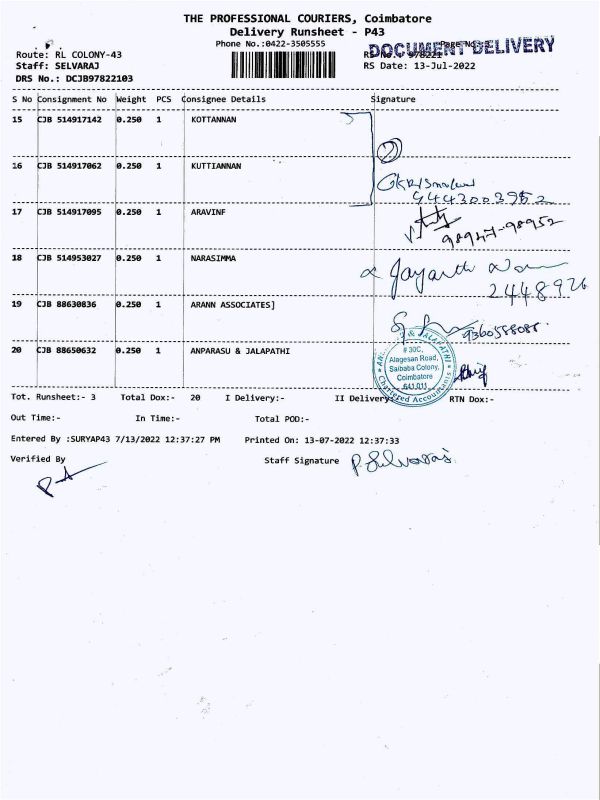 THE PROFESSIONAL COURIERS, Coimbatore
Delivery Runsheet - P43
Phone No.:0422-3505555
DOCUMENT DELIVERY
Route: RL COLONY-43
Staff: SELVARAJ
RS Date: 13-Jul-2022
DRS No.: DCJB97822103
S No Consignment No Weight PCS Consignee Details Signature
15 CJB 514917142 0.250 1 KOTTANNAN
2
16 CJB 514917062 0.250 1 KUTTIANNAN
9443003952
17 CJB 514917095 0.250 1 ARAVINF
98947-98952
18 CJB 514953027 0.250 1 NARASIMMA
2448926
19 CJB 88630836 0.250 1 ARANN ASSOCIATES]
9360588088
20 CJB 88650632 0.250 1 ANPARASU & JALAPATHI
& JALAPATHI
# 30C,
Alagesan Road,
Saibaba Colony,
Coimbatore
641 011
Chartered Accountants
Tot. Runsheet:- 3 Total Dox:- 20 I Delivery:- II Delivery RTN Dox:-
Out Time:- In Time:- Total POD:-
Entered By :SURYAP43 7/13/2022 12:37:27 PM Printed On: 13-07-2022 12:37:33
Verified By Staff Signature P. Selvaraj